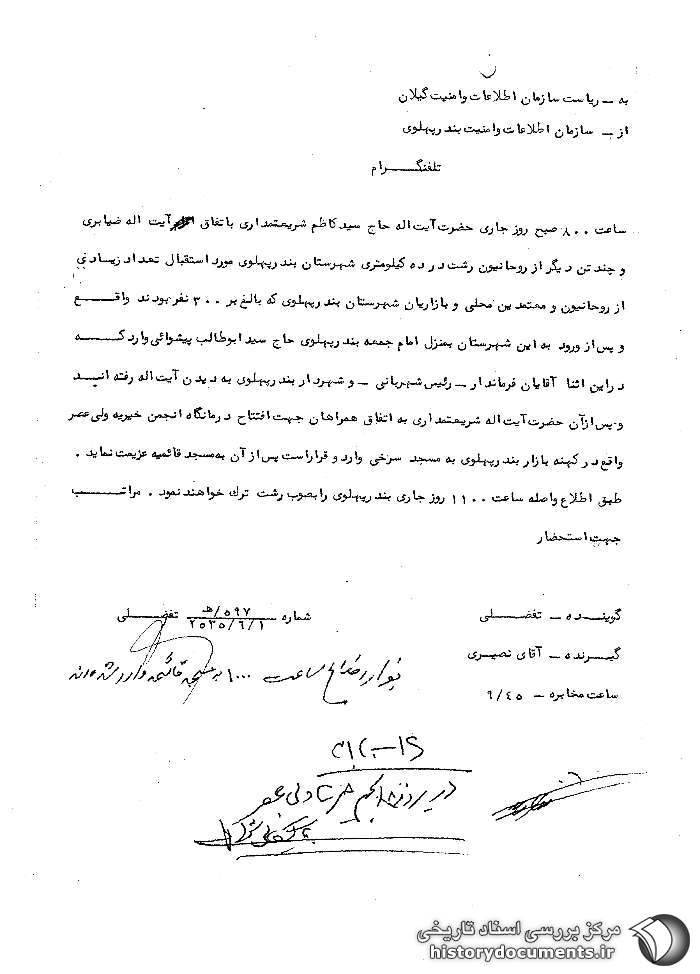 به – ریاست سازمان اطلاعات وامنیت گیلان
از – سازمان اطلاعات وامنیت بندرپهلوی
تلفنگرام
ساعت ۸۰۰ صبح روز جاری حضرت آیت اله حاج سید کاظم شریعتمداری باتفاق آیت اله ضیابری
و چند تن دیگر از روحانیون رشت در ده کیلومتری شهرستان بندرپهلوی مورد استقبال تعداد زیادی
از روحانیون و معتمدین محلی و بازاریان شهرستان بندرپهلوی که بالغ بر ۳۰۰ نفر بودند واقع
و پس از ورود به این شهرستان بمنزل امام جمعه بندرپهلوی حاج سید ابوطالب پیشوائی وارد که
در این اثنا آقایان فرماندار – رئیس شهربانی – و شهردار بندپهلوی به دیدن آیت اله رفته اند
و پس از آن حضرت آیت اله شریعتمداری به اتفاق همراهان جهت افتتاح درمانگاه انجمن خیریه ولی عصر
واقع در کهنه بازار بندرپهلوی به مسجد سرخی وارد و قراراست پس از آن به مسجد قائمیه عزیمت نماید .
طبق اطلاع واصله ساعت ۱۱۰۰ روز جاری بندرپهلوی را بصوب رشت ترك خواهند نمود . مراتب
جهت استحضار
گوینده – تفضلی
شماره ۵۹۷/هـ تفضلی
۲۵۳۵/۶/۱
گیرنده – آقای نصیری
ساعت ۱۰۰۰ به مسجد قائمیه وارد شده اند
ساعت مخابره – ۹/۴۵
در پرونده انجمن ولی عصر
مرکز بررسی اسناد تاریخی
historydocuments.ir